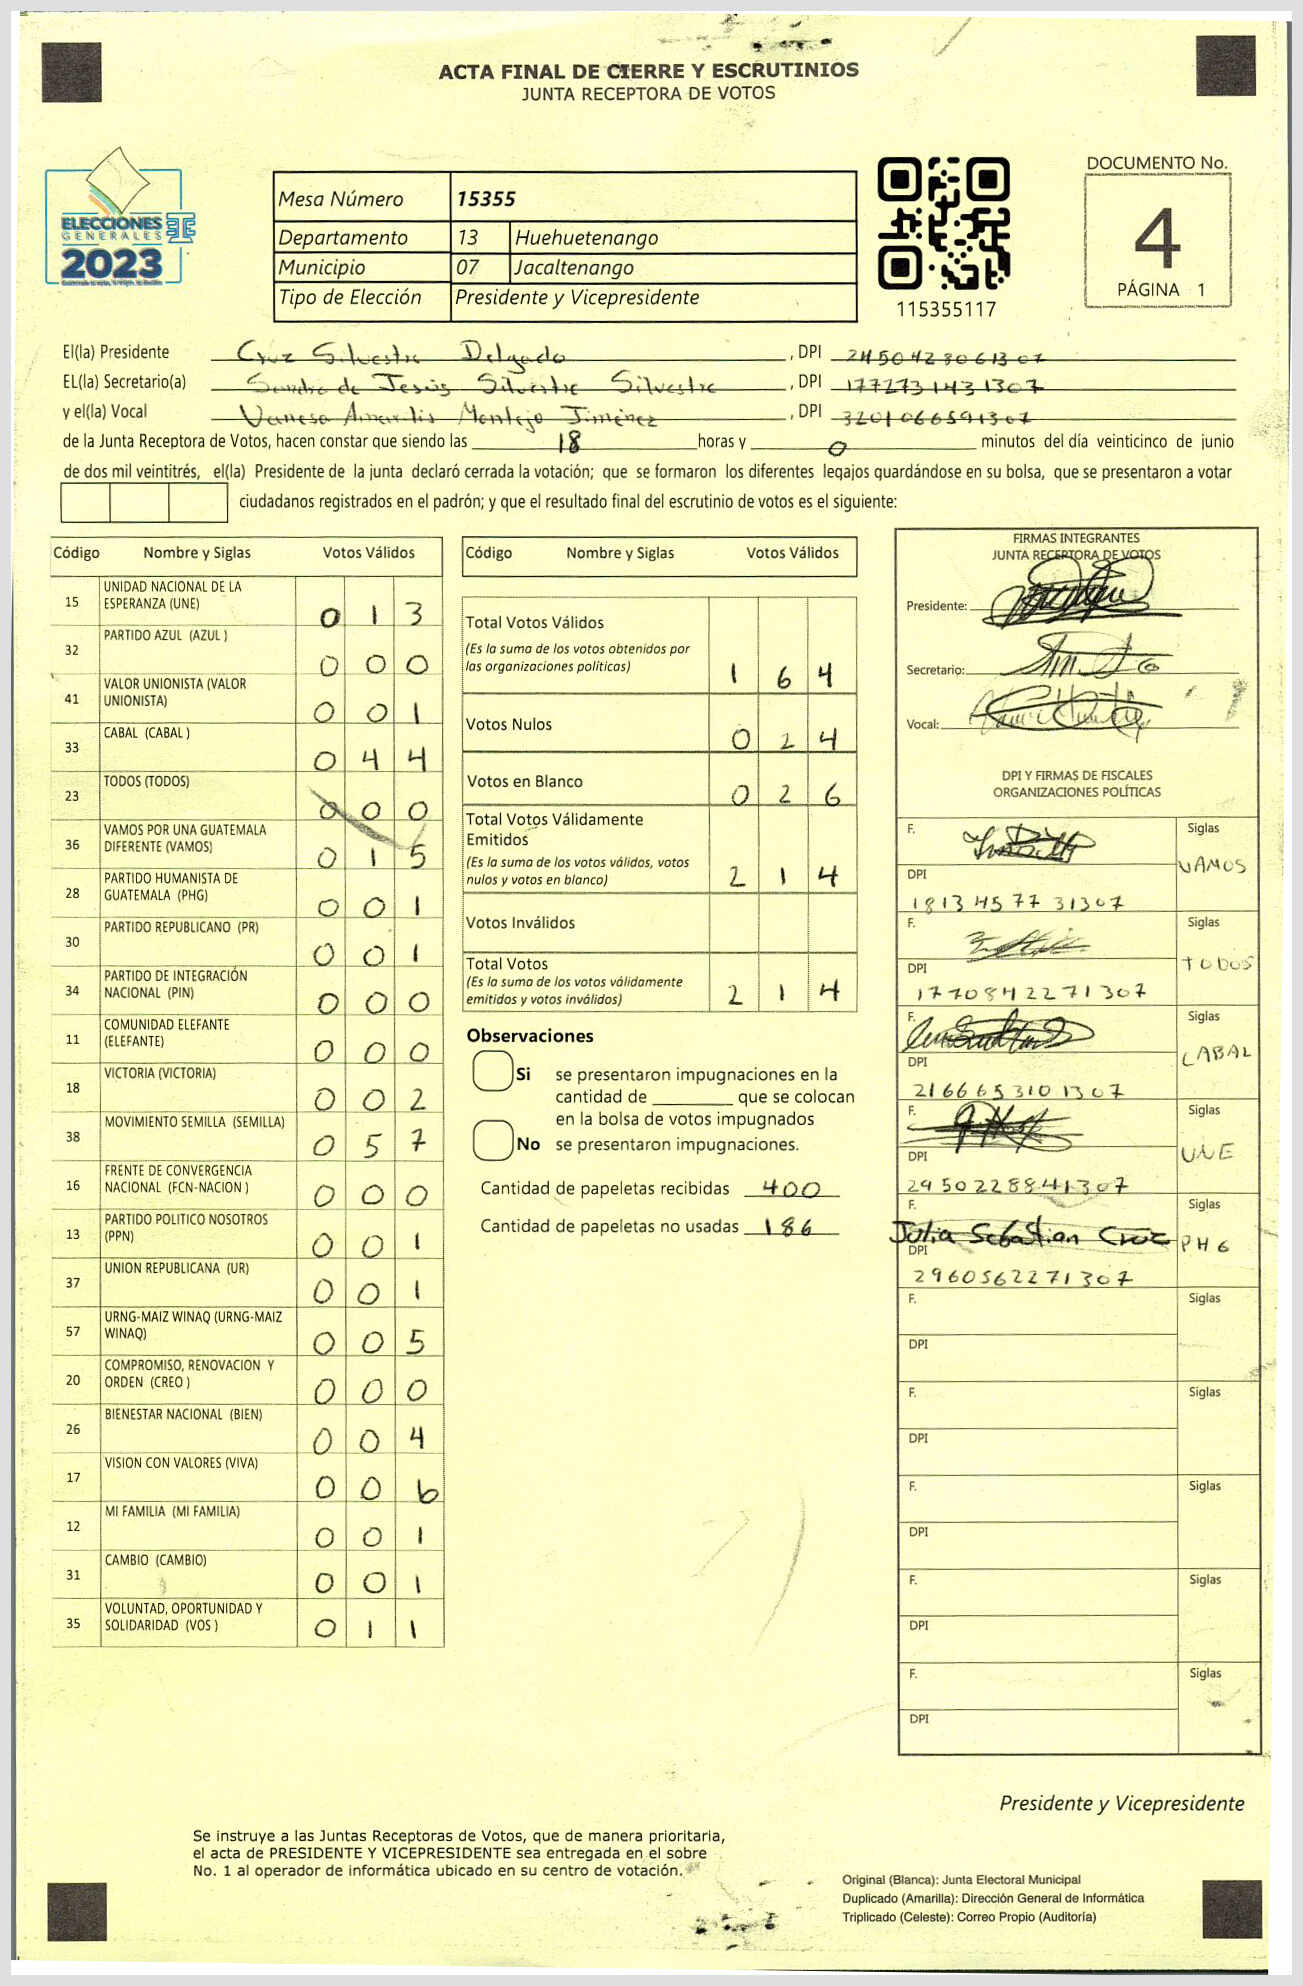 ACTA FINAL DE CIERRE Y ESCRUTINIOS
JUNTA RECEPTORA DE VOTOS
ELECCIONES
GENERALES
2023
Mesa Número 15355
Departamento 13 Huehuetenango
Municipio 07 Jacaltenango
Tipo de Elección Presidente y Vicepresidente
115355117
DOCUMENTO No.
4
PÁGINA 1
El(la) Presidente Cruz Silvestre Delgado , DPI 2450428061307
EL(la) Secretario(a) Sandra de Jesús Silvestre Silvestre , DPI 1772731431307
y el(la) Vocal Vanesa Amarilis Montejo Jiménez , DPI 3201066591307
de la Junta Receptora de Votos, hacen constar que siendo las 18 horas y 0 minutos del día veinticinco de junio
de dos mil veintitrés, el(la) Presidente de la junta declaró cerrada la votación; que se formaron los diferentes legajos guardándose en su bolsa, que se presentaron a votar
ciudadanos registrados en el padrón; y que el resultado final del escrutinio de votos es el siguiente:
Código Nombre y Siglas Votos Válidos
15 UNIDAD NACIONAL DE LA
ESPERANZA (UNE) 0 1 3
32 PARTIDO AZUL (AZUL ) 0 0 0
41 VALOR UNIONISTA (VALOR
UNIONISTA) 0 0 1
33 CABAL (CABAL ) 0 4 4
23 TODOS (TODOS) 0 0 0
36 VAMOS POR UNA GUATEMALA
DIFERENTE (VAMOS) 0 1 5
28 PARTIDO HUMANISTA DE
GUATEMALA (PHG) 0 0 1
30 PARTIDO REPUBLICANO (PR) 0 0 1
34 PARTIDO DE INTEGRACIÓN
NACIONAL (PIN) 0 0 0
11 COMUNIDAD ELEFANTE
(ELEFANTE) 0 0 0
18 VICTORIA (VICTORIA) 0 0 2
38 MOVIMIENTO SEMILLA (SEMILLA) 0 5 7
16 FRENTE DE CONVERGENCIA
NACIONAL (FCN-NACION ) 0 0 0
13 PARTIDO POLITICO NOSOTROS
(PPN) 0 0 1
37 UNION REPUBLICANA (UR) 0 0 1
57 URNG-MAIZ WINAQ (URNG-MAIZ
WINAQ) 0 0 5
20 COMPROMISO, RENOVACION Y
ORDEN (CREO ) 0 0 0
26 BIENESTAR NACIONAL (BIEN) 0 0 4
17 VISION CON VALORES (VIVA) 0 0 6
12 MI FAMILIA (MI FAMILIA) 0 0 1
31 CAMBIO (CAMBIO) 0 0 1
35 VOLUNTAD, OPORTUNIDAD Y
SOLIDARIDAD (VOS ) 0 1 1
Código Nombre y Siglas Votos Válidos
Total Votos Válidos
(Es la suma de los votos obtenidos por
las organizaciones políticas) 1 6 4
Votos Nulos 0 2 4
Votos en Blanco 0 2 6
Total Votos Válidamente
Emitidos
(Es la suma de los votos válidos, votos
nulos y votos en blanco) 2 1 4
Votos Inválidos
Total Votos
(Es la suma de los votos válidamente
emitidos y votos inválidos) 2 1 4
Observaciones
Si se presentaron impugnaciones en la
cantidad de ________ que se colocan
en la bolsa de votos impugnados
No se presentaron impugnaciones.
Cantidad de papeletas recibidas 400
Cantidad de papeletas no usadas 186
FIRMAS INTEGRANTES
JUNTA RECEPTORA DE VOTOS
Presidente:
Secretario:
Vocal:
DPI Y FIRMAS DE FISCALES
ORGANIZACIONES POLÍTICAS
F. Siglas
VAMOS
DPI
1813 4577 31307
F. Siglas
TODOS
DPI
1770842271307
F. Siglas
CABAL
DPI
2166653101307
F. Siglas
UNE
DPI
2950228841307
F. Siglas
Julia Sebastian Cruz PHG
DPI
2960562271307
F. Siglas
DPI
F. Siglas
DPI
F. Siglas
DPI
F. Siglas
DPI
F. Siglas
DPI
Presidente y Vicepresidente
Se instruye a las Juntas Receptoras de Votos, que de manera prioritaria,
el acta de PRESIDENTE Y VICEPRESIDENTE sea entregada en el sobre
No. 1 al operador de informática ubicado en su centro de votación.
Original (Blanca): Junta Electoral Municipal
Duplicado (Amarilla): Dirección General de Informática
Triplicado (Celeste): Correo Propio (Auditoría)